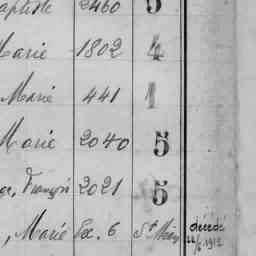 aptiste 2460 5
Marie 1802 4
Marie 441 1
Marie 2040 5
François 2021 5
, Marie Ex. 6 St décédé
22/6 1912